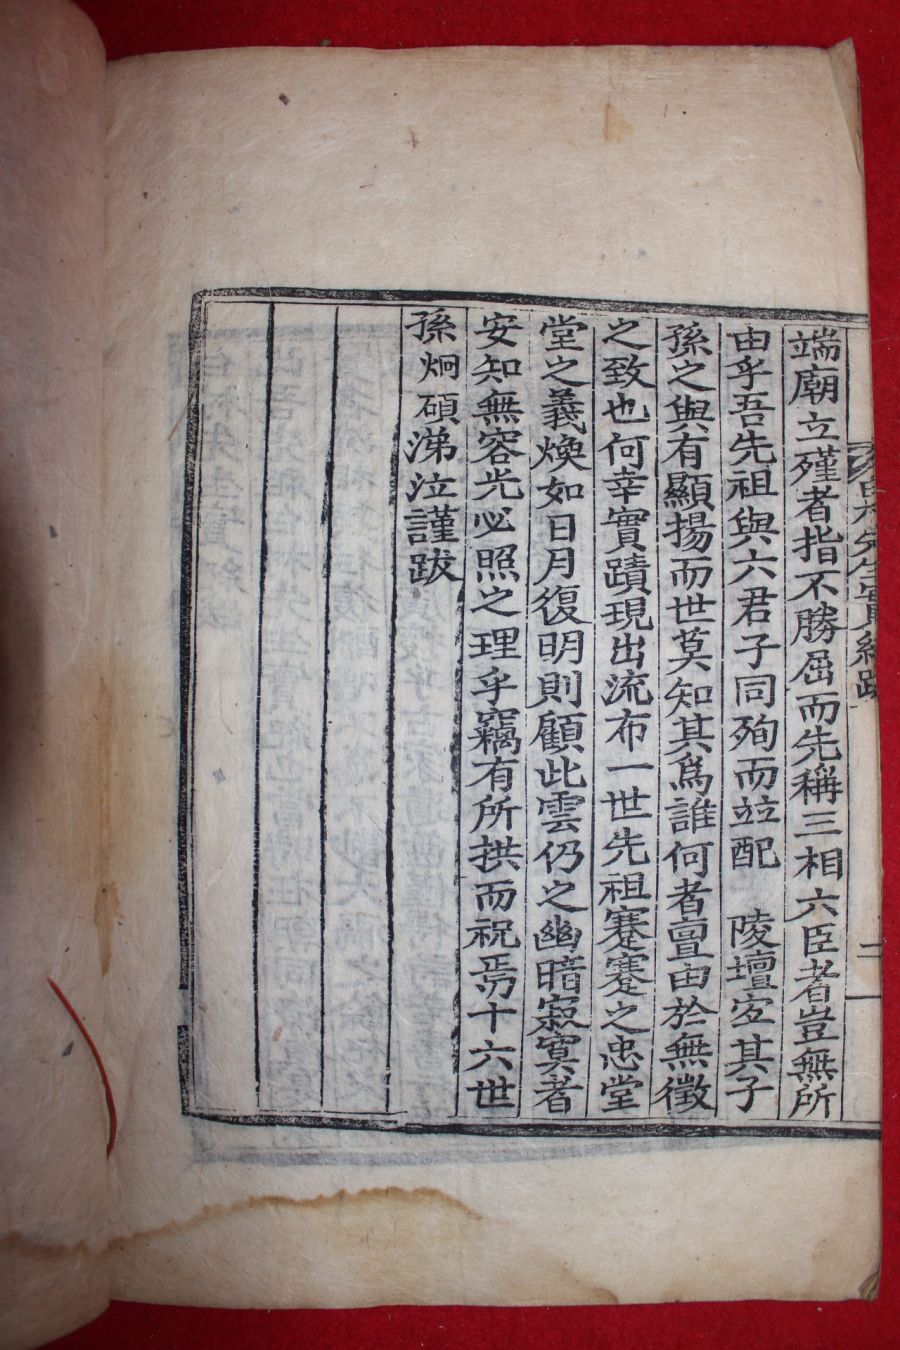 端廟立殣者指不勝屈而先稱三相六臣者豈無所
由乎吾先祖與六君子同殉而竝配　陵壇宜其子
孫之與有顯揚而世莫知其爲誰何者亶由於無徵
之致也何幸實蹟現出流布一世先祖蹇蹇之忠堂
堂之義煥如日月復明則顧此雲仍之幽暗寂寞者
安知無容光必照之理乎竊有所拱而祝焉十六世
孫炯碩涕泣謹跋
先生實紀跋
二